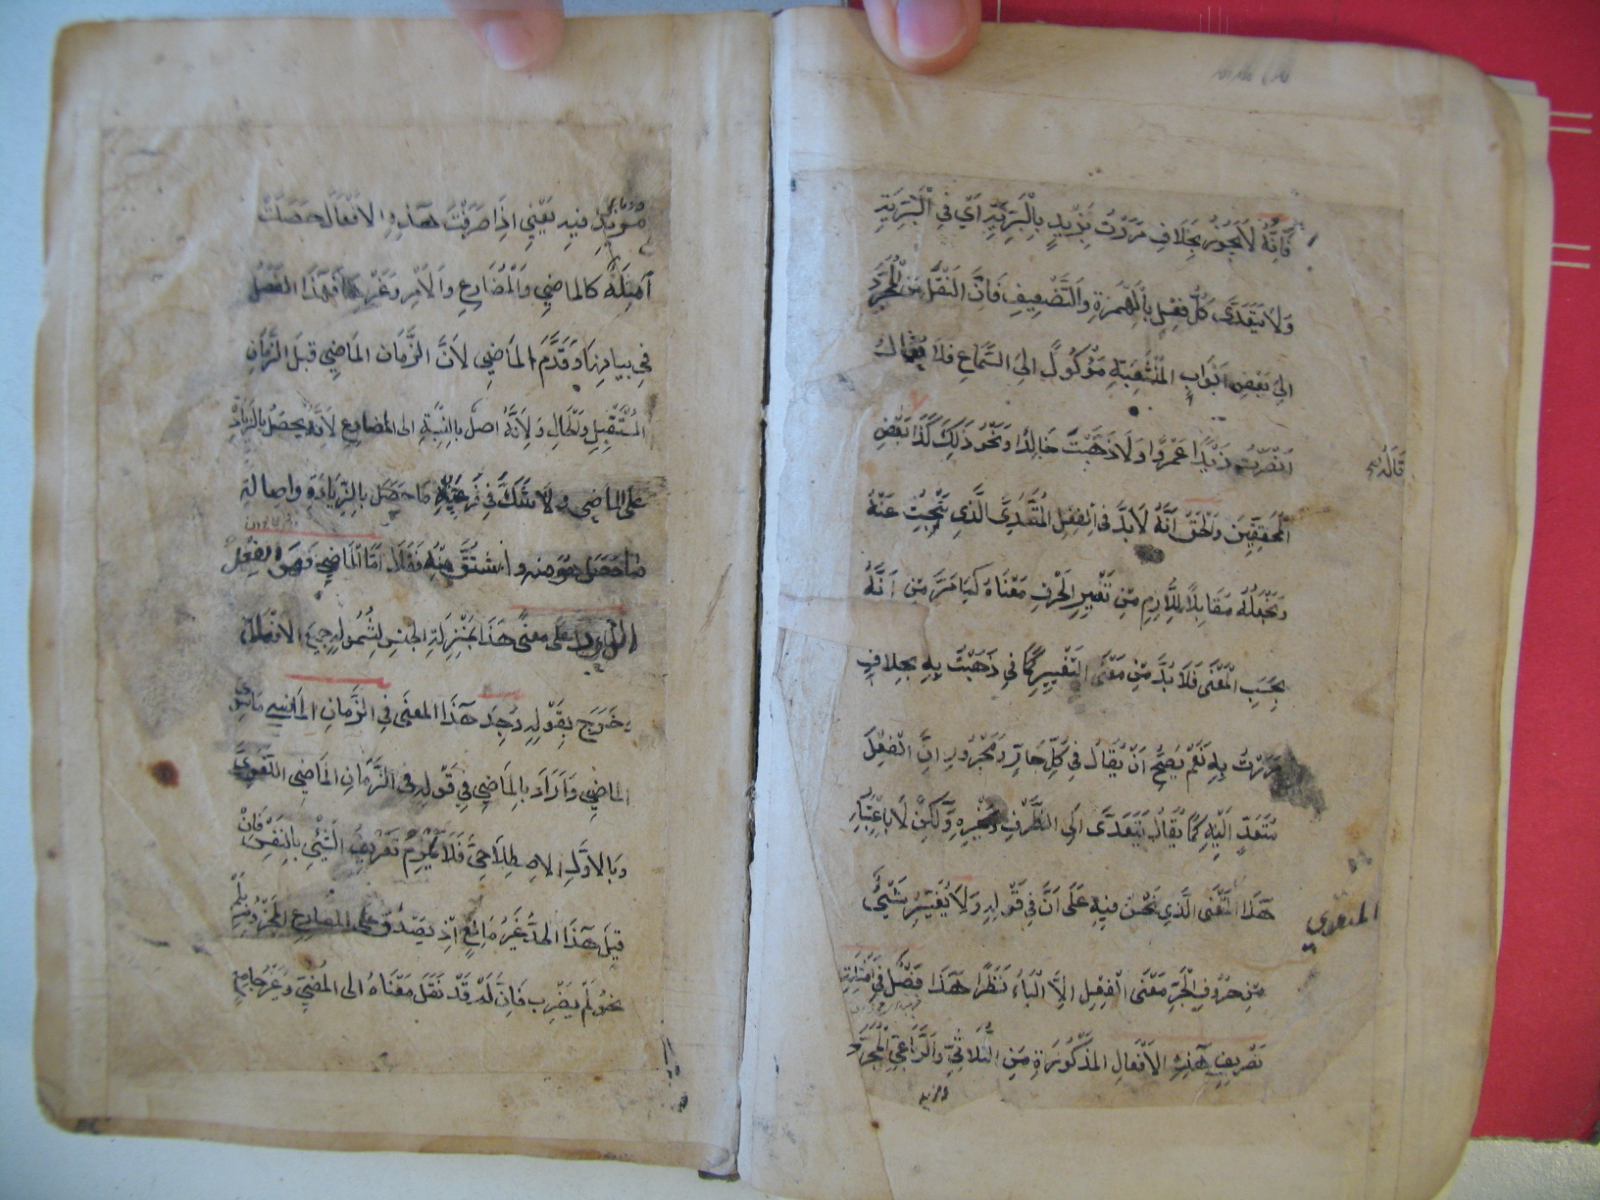 فَإِنَّهُ لَا يَجُوزُ بِخِلَافِ مَرَرْتُ بِزَيْدٍ بِالْبَرِّيَّةِ اَيْ فِي الْبَرِّيَّةِ
وَلَا يَتَعَدَّى كُلُّ فِعْلٍ بِالْهَمْزَةِ وَالتَّضْعِيفِ فَاِنَّ النَّقْلَ مِنَ الْمُجَرَّدِ
اِلَى بَعْضِ اَبْوَابِ الْمُنْشَعِبَةِ مَوْكُولٌ اِلَى السَّمَاعِ فَلَا يُقَالُ
اَنْصَرْتُ زَيْدًا عَمْرًوا وَلَا ذَهَّبْتُ خَالِدًا وَنَحْوُ ذَلِكَ كَذَا بَعْضُ
قَالَهُ
الْمُحَقِّقِينَ وَالْحَقُّ اَنَّهُ لَا بُدَّ فِي الْفِعْلِ الْمُتَعَدِّي الَّذِي نَبْحَثُ عَنْهُ
وَنَجْعَلُهُ مُقَابِلًا لِلَّازِمِ مِنْ تَغْيِيرِ الْحَرْفِ مَعْنَاهُ كَمَا مَرَّ مِنْ اَنَّهُ
بِحَسَبِ الْمَعْنَى فَلَا بُدَّ مِنْ مَعْنَى التَّغْيِيرِ كَمَا فِي ذَهَبْتَ بِهِ بِخِلَافِ
مَرَرْتُ بِهِ نَعَمْ يَصِحُّ اَنْ يُقَالَ فِي كُلِّ جَارٍّ وَمَجْرُورٍ اِنَّ الْفِعْلَ
مُتَعَدٍّ اِلَيْهِ كَمَا يُقَالُ يَتَعَدَّى اِلَى الظَّرْفِ وَغَيْرِهِ وَلَكِنْ لَا بِاعْتِبَارِ
هَذَا الْمَعْنَى الَّذِي نَحْنُ فِيهِ عَلَى اَنَّ فِي قَوْلِهِ وَلَا يُغَيِّرُ شَيْئٌ
المتعدي
مِنْ حُرُوفِ الْجَرِّ مَعْنَى الْفِعْلِ اِلَّا الْبَاءُ نَظَرًا هَذَا فَصْلٌ فِي اَمْثِلَةِ
تَصْرِيفِ هَذِهِ الْاَفْعَالِ الْمَذْكُورَةِ مِنَ الثُّلَاثِيِّ وَالرُّبَاعِيِّ الْمُجَرَّدِ
والمزيد
فِيهِ يَعْنِي اِذَا صَرَفْتَ هَذِهِ الْاَفْعَالَ حَصَلَتْ
اَمْثِلَةٌ كَالْمَاضِي وَالْمُضَارِعِ وَالْاَمْرِ وَغَيْرِهَا فَهَذَا الْفَصْلُ
فِي بَيَانِهَا وَقَدَّمَ الْمَاضِي لِاَنَّ الزَّمَانَ الْمَاضِيَ قَبْلَ الزَّمَانِ
الْمُسْتَقْبَلِ وَالْحَالِ وَلِاَنَّهُ اَصْلٌ بِالنِّسْبَةِ اِلَى الْمُضَارِعِ لِاَنَّهُ يَحْصُلُ بِالزِّيَادَةِ
عَلَى الْمَاضِي وَلَا شَكَّ فِي فَرْعِيَّةِ مَا حَصَلَ بِالزِّيَادَةِ وَاَصَالَةِ
مَا حَصَلَ هُوَ مِنْهُ وَاشْتُقَّ مِنْهُ فَقَالَ اَمَّا الْمَاضِي فَهُوَ الْفِعْلُ
الَّذِي دَلَّ عَلَى مَعْنًى هَذَا بِمَنْزِلَةِ الْجِنْسِ لِشُمُولِهِ جَمِيعَ الْاَفْعَالِ
وَخَرَجَ بِقَوْلِهِ وُجِدَ هَذَا الْمَعْنَى فِي الزَّمَانِ الْمَاضِي مَا سِوَى
الْمَاضِي وَاَرَادَ بِالْمَاضِي فِي قَوْلِهِ فِي الزَّمَانِ الْمَاضِي اللُّغَوِيَّ
وَبِالْاَوَّلِ الْاِصْطِلَاحِيَّ فَلَا يَلْزَمُ تَعْرِيفُ الشَّيْئِ بِالنَّفْسِ فَاِنْ
قِيلَ هَذَا الْحَدُّ غَيْرُ مَانِعٍ اِذْ يَصْدُقُ عَلَى الْمُضَارِعِ الْمَجْزُومِ بِلَمْ
نَحْوُ لَمْ يَضْرِبْ فَاِنَّ لَمْ قَدْ نَقَلَ مَعْنَاهُ اِلَى الْمُضِيِّ وَغَيْرُ جَامِعٍ